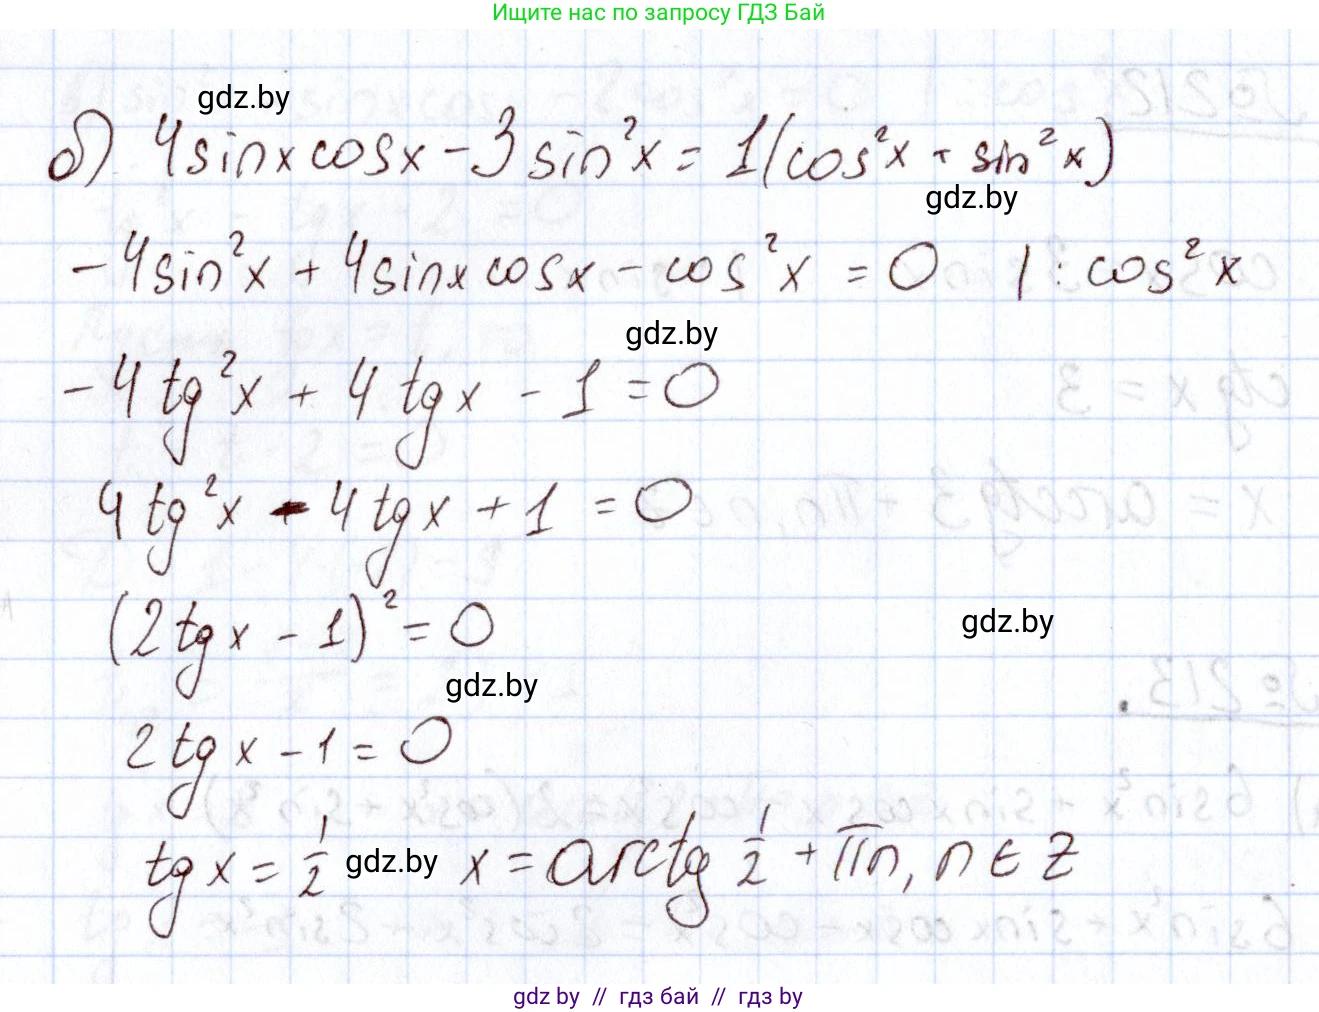 Ищите нас по запросу ГДЗ Бай
gdz.by
б) 4sinxcosx - 3sin²x = 1(cos²x + sin²x)
gdz.by
-4sin²x + 4sinxcosx - cos²x = 0 | : cos²x
gdz.by
-4tg²x + 4tgx - 1 = 0
4tg²x - 4tgx + 1 = 0
(2tgx - 1)² = 0
gdz.by
gdz.by
2tgx - 1 = 0
tgx = 1/2 gdz.by x = arctg 1/2 + πn, n ∈ Z
gdz by // гдз бай // гдз by